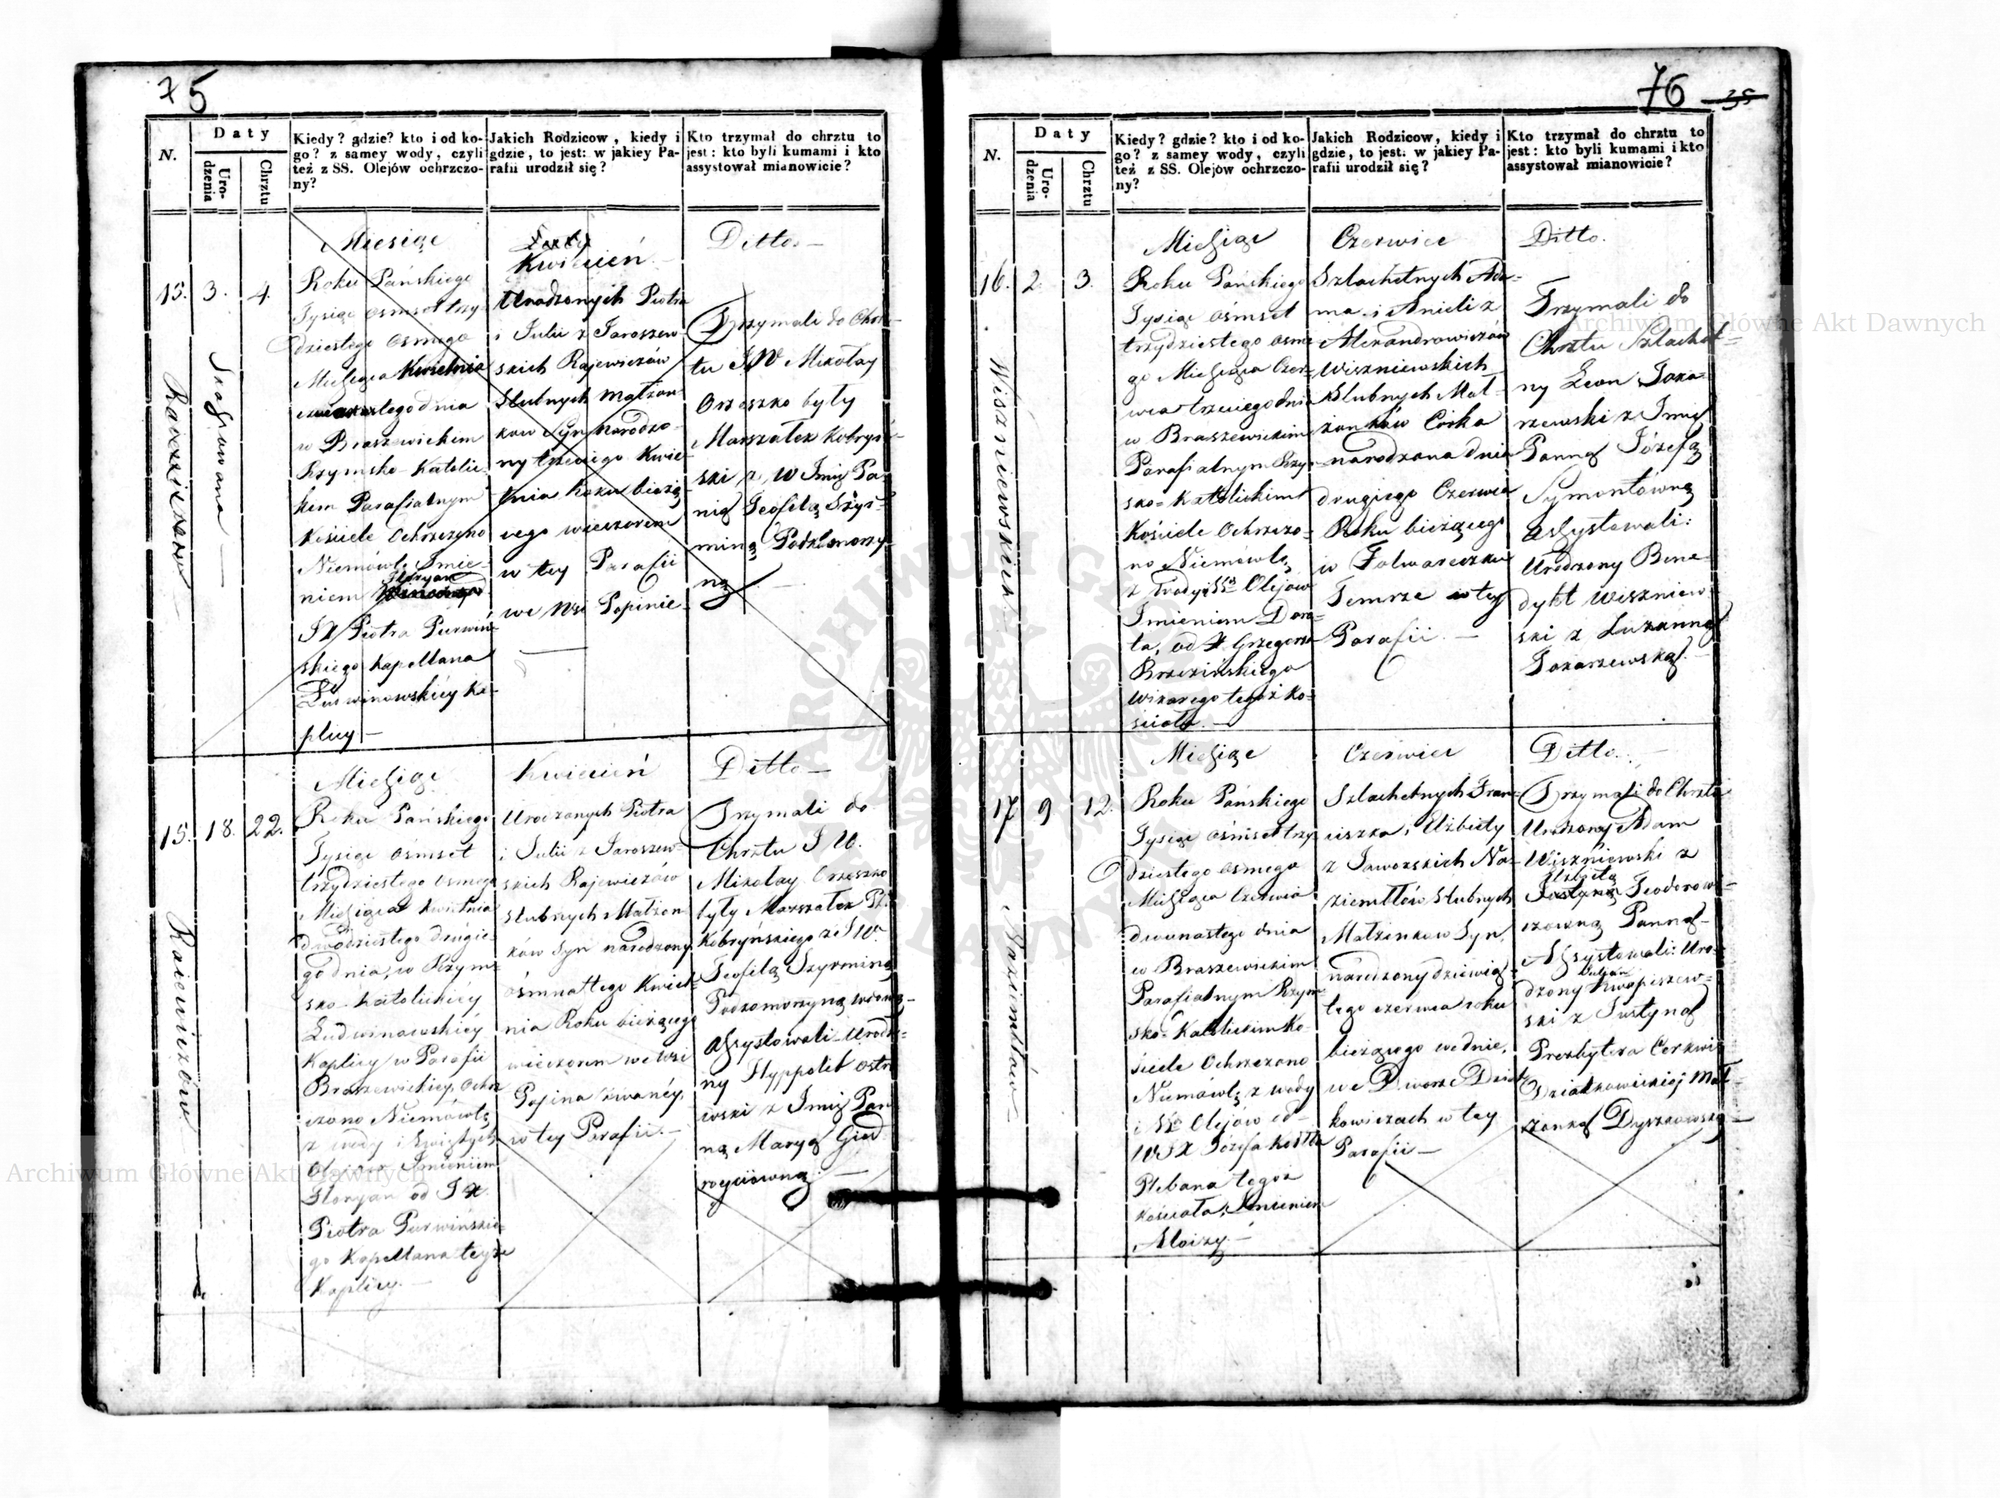 75
N.
Daty
Uro-
dzenia
Chrztu
Kiedy? gdzie? kto i od ko-
go? z samey wody, czyli
też z SS. Olejów ochrzczo-
ny?
Jakich Rodzicow, kiedy i
gdzie, to jest: w jakiey Pa-
rafii urodził się?
Kto trzymał do chrztu to
jest: kto byli kumami i kto
assystował mianowicie?
15. 3. 4.
Skassowana
Miesiąc
Roku Pańskiego
Tysiąc ośmset trzy
dziestego osmego
Miesiąca Kwietnia
dnia
w Braszewickim
Rzymsko Katolic-
kim Parafialnym
Kościele Ochrzczono
Niemówlę Imie-
niem Floryan
JX Piotra Purwiń-
skiego Kapellana
Ludwinowskiéy Ka-
plicy
Kwiecień
Urodzonych Piotra
i Julii z Jaroszew-
skich Rajewiczów
Slubnych Małżon-
kow Syn narodzo-
ny trzeciego Kwie-
tnia Roku bieżą-
cego wieczorem
w tey Parafii
we Wsi Popinie
Ditto.
Trzymali do Chrz-
tu JW Mikołay
Orzeszko były
Marszałek Kobryń-
ski z W Jmię Pa-
nią Teofilą Szyr-
miną Podkomorzy-
ną
15. 18. 22.
Raiewiczów
Miesiąc
Roku Pańskiego
Tysiąc ośmset
trzydziestego osmego
Miesiąca Kwietnia
dwódziestego drugie-
go dnia, w Rzym-
sko-Katolickiéy
Ludwinowskiéy
Kaplicy w Parafii
Braszewickiey, Ochrz
czono Niemówlę
z wody i Swiętych
Olejow Imieniem
Floryan od JX.
Piotra Purwińskie-
go Kapellana teyże
Kaplicy.
Kwiecień
Urodzonych Piotra
i Julii z Jaroszew-
skich Rajewiczów
slubnych Małżon
ków Syn narodzony
ósmnastego Kwiet-
nia Roku bieżącego
wieczorem we wsi
zwanéy,
w tey Parafii.
Ditto
Trzymali do
Chrztu J W.
Mikolay Orzeszko
były Marszałek Pt.
Kobryńskiego z JW.
Teofilą Szyrminą
Podkomorzyną
Assystowali Urodzo-
ny Hyppolit Ostro
wski z Jmię Pan
ną Maryą Gied-
royciówną.
76
35
N.
Daty
Uro-
dzenia
Chrztu
Kiedy? gdzie? kto i od ko-
go? z samey wody, czyli
też z SS. Olejów ochrzczo-
ny?
Jakich Rodzicow, kiedy i
gdzie, to jest: w jakiey Pa-
rafii urodził się?
Kto trzymał do chrztu to
jest: kto byli kumami i kto
assystował mianowicie?
16. 2. 3.
Miesiąc
Roku Pańskiego
Tysiąc ośmset
trzydziestego osme
go Miesiąca Czer-
wca trzeciego dnia
w Braszewickim
Parafialnym Rzym-
sko-Katolickim
Kościele Ochrzczo-
no Niemówlę
z Wody i SS. Olejow
Imieniem Doro-
ta, od X Grzegorza
Brzezińskiego
Wikarego tegoż Ko-
ścioła.
Czerwiec
Szlachetnych Ada-
ma i Anieli z
Alexandrowiczów
Wiszniewskich
Slubnych Mał-
żonków Córka
narodzona dnia
drugiego Czerwca
Roku bieżącego
w Folwareczku
Temrze w tey
Parafii.
Ditto.
Trzymali do
Chrztu Szlachet-
ny Leon Toka-
rzewski z Jmię
Panną Józefą
Symontówną
Assystowali:
Urodzony Bene-
dykt Wiszniew-
ski z Zuzanną
Tokarzewską.
17 9 12.
Miesiąc
Roku Pańskiego
Tysiąc ośmset trzy
dziestego osmego
Miesiąca Czerwca
dwunastego dnia
w Braszewickim
Parafialnym Rzym
sko-Katolickim Ko-
ściele Ochrzczono
Niemówlę z wody
i SS. Olejów od
WJX Józefa
Plebana tegoż
Kościoła, Imieniem
Aloizy
Czerwiec
Szlachetnych Fran-
ciszka i Elżbiety
z Jaworskich Na-
ziembłów slubnych
Małżonkow Syn,
narodzony dziewią-
tego czerwca roku
bieżącego we dnie,
we Dworze Dziat-
kowiczach w tey
Parafii
Ditto.
Trzymali do Chrztu
Urodzony Adam
Wiszniewski z
Elżbietą
Teodorowi-
czowną Panną
Assystowali: Uro-
dzony Julian Kwapiszew-
ski z Justyną
Prezbytera Cerkwi
Dziatkowickiej Mał
żonką Dyszkowską
Archiwum Główne Akt Dawnych
Archiwum Główne Akt Dawnych